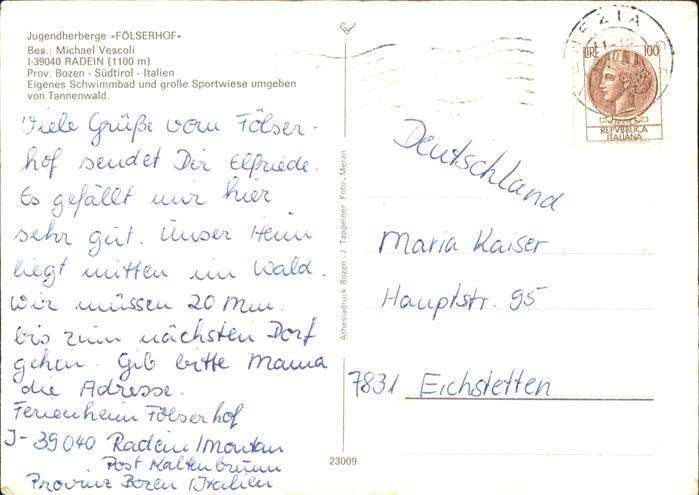 Jugendherberge »FÖLSERHOF«
Bes.: Michael Vescoli
I-39040 RADEIN (1100 m)
Prov. Bozen - Südtirol - Italien
Eigenes Schwimmbad und große Sportwiese umgeben
von Tannenwald.
Viele Grüße vom Fölser-
hof sendet Dir Elfriede.
Es gefällt mir hier
sehr gut. Unser Heim
liegt mitten im Wald.
Wir müssen 20 Min.
bis zum nächsten Dorf
gehen. Gib bitte Mama
die Adresse.
Ferienheim Fölserhof
I-39040 Radein/Montan
Post Kaltenbrunn
Provinz Bozen/Italien
Athesiadruck Bozen - J. Tappeiner Foto, Meran
23009
VENEZIA
LIRE 100
REPVBBLICA
ITALIANA
Deutschland
Maria Kaiser
Hauptstr. 95
7831 Eichstetten